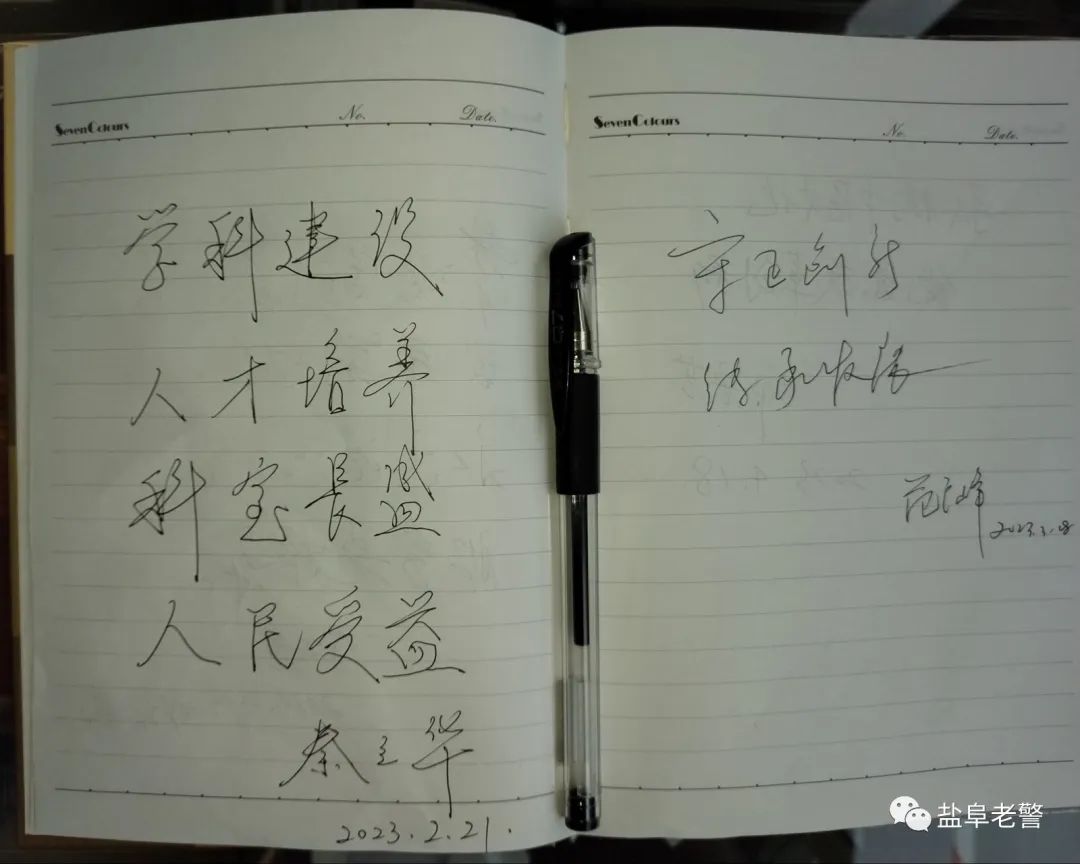 SevenColours No. Date.
学科建设
人才培养
科室長盛
人民受益
秦立华
2023.2.21.
SevenColours No. Date.
守正创新
传承发展
范 峰
2023.3.08
盐阜老警